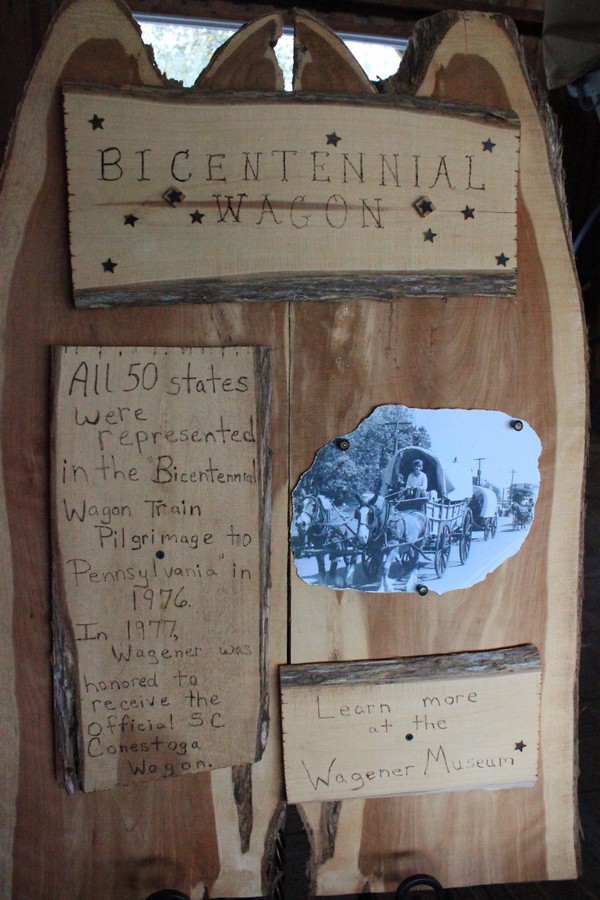 BICENTENNIAL
WAGON
All 50 states
were
represented
in the "Bicentennial
Wagon Train
Pilgrimage to
Pennsylvania" in
1976.
In 1977,
Wagener was
honored to
receive the
Official SC
Conestoga
Wagon.
Learn more
at the
Wagener Museum